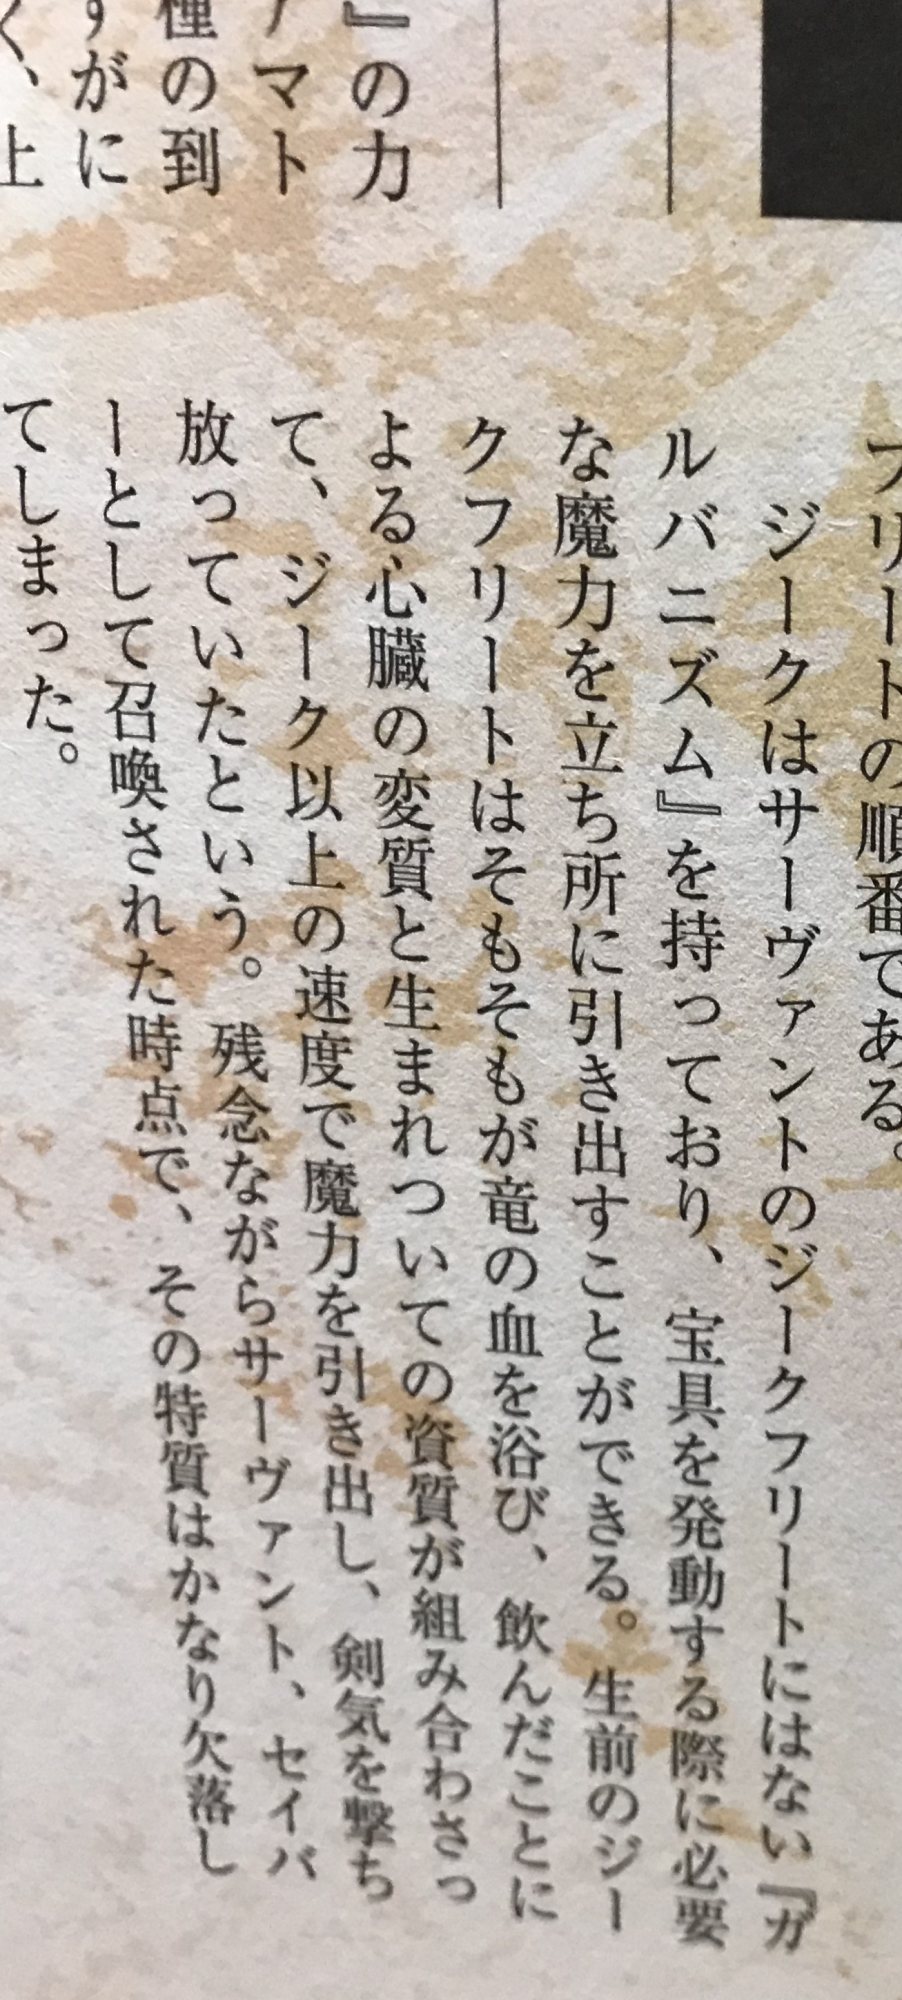 フリートの順番である。
ジークはサーヴァントのジークフリートにはない『ガ
ルバニズム』を持っており、宝具を発動する際に必要
な魔力を立ち所に引き出すことができる。生前のジー
クフリートはそもそもが竜の血を浴び、飲んだことに
よる心臓の変質と生まれついての資質が組み合わさっ
て、ジーク以上の速度で魔力を引き出し、剣気を撃ち
放っていたという。残念ながらサーヴァント、セイバ
ーとして召喚された時点で、その特質はかなり欠落し
てしまった。
』の力
アマト
種の到
すがに
く、上